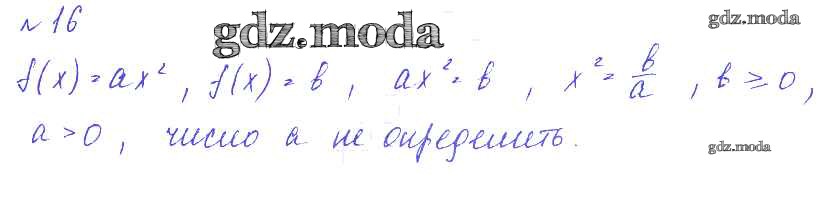 №16
gdz.moda
gdz.moda
f(x) = ax², f(x) = b, ax² = b, x² = b/a, b ≥ 0,
a > 0, число a не определить.
gdz.moda